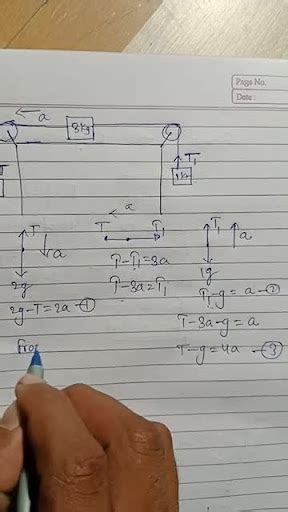 Page No.
Date:
a
3kg
T
T₁
1kg
a
T
a
2g
2g-T=2a -①
T T₁
T-T₁=3a
T-3a=T₁
T₁
a
1g
T₁-g=a -②
T-3a-g=a
T-g=4a -③